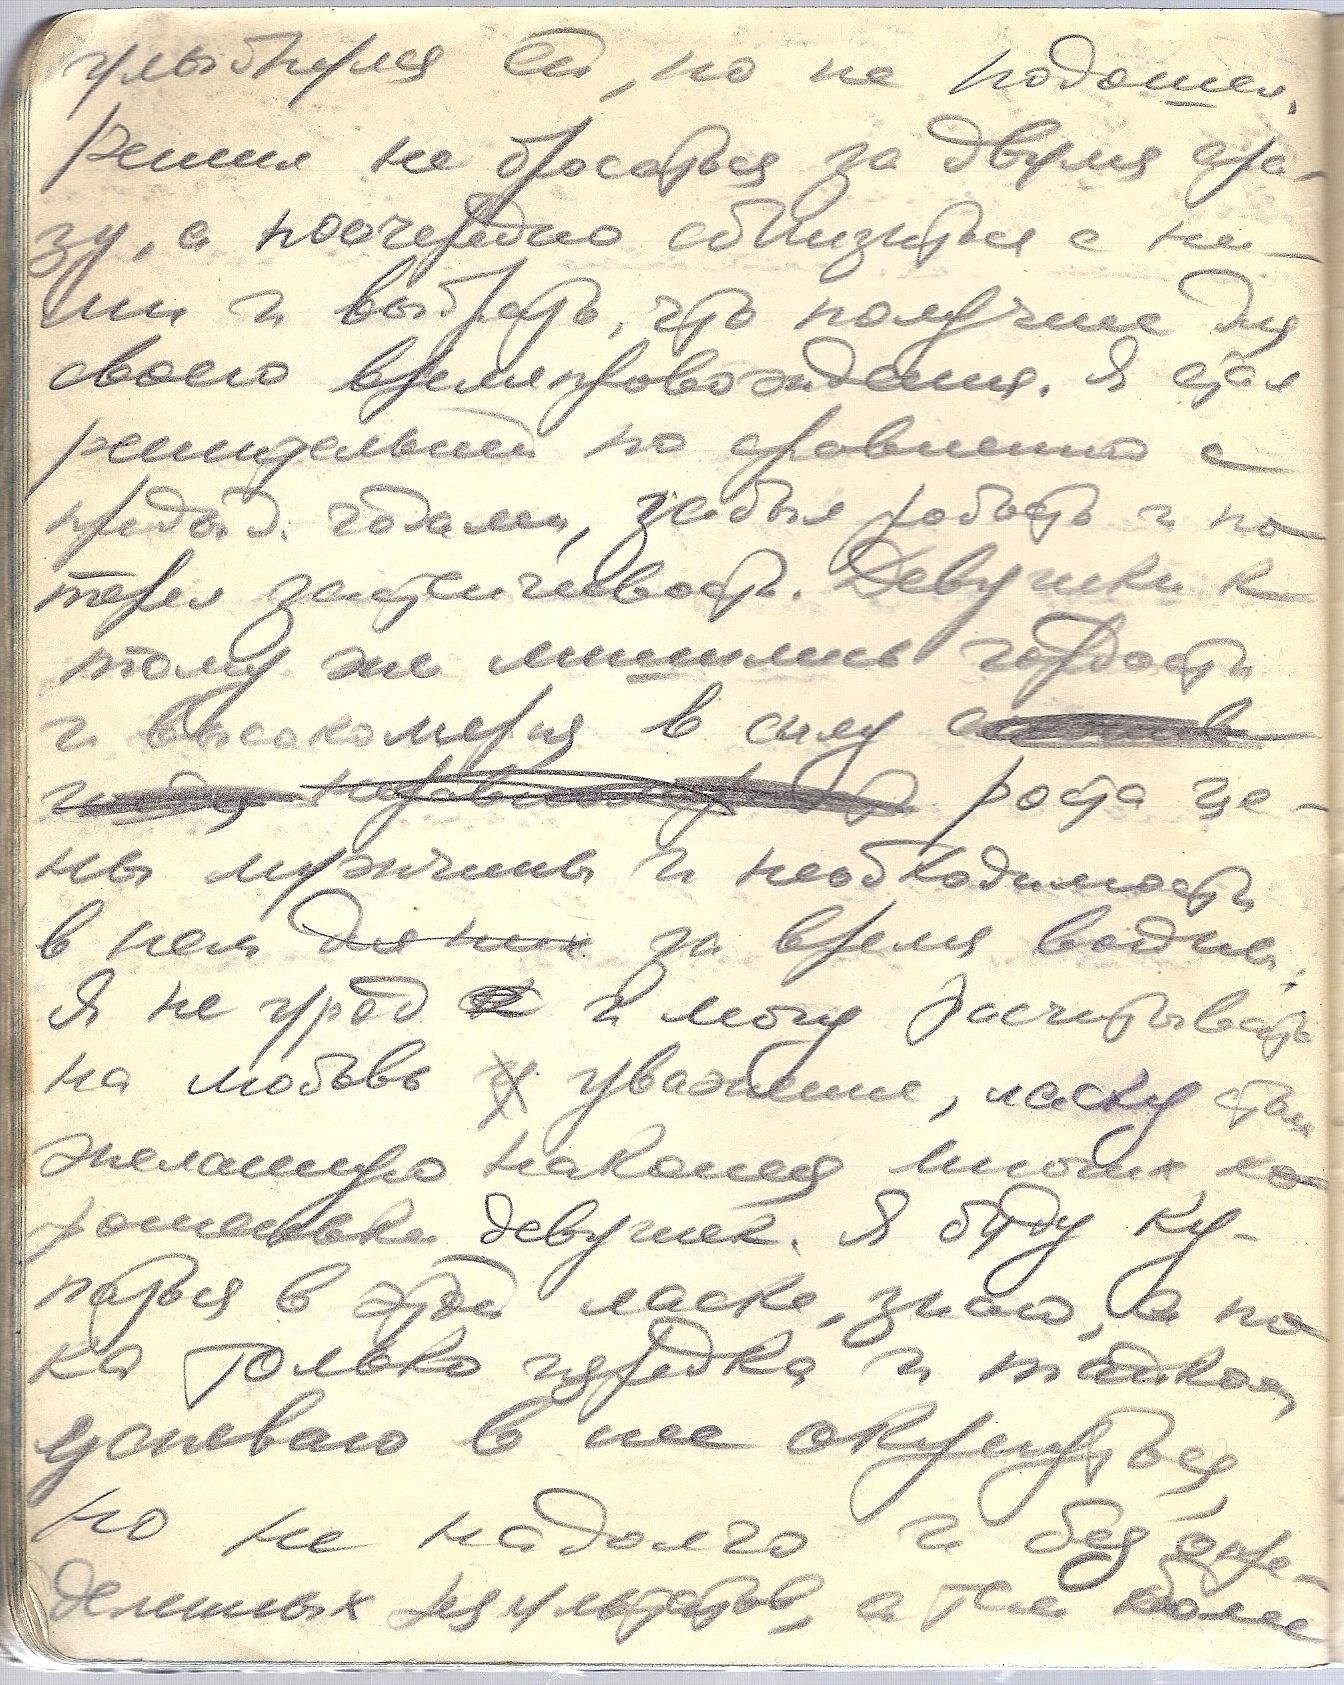 улыбнулся ей, но не подошел.
Решил не бросаться за двумя сра-
зу, а поочередно сблизиться с ни-
ми и выбрать, что получше для
своего времяпровождения. Я стал
решительней по сравнению с
предыд. годами, забыл робость и по
терял застенчивость. Девушки к
тому же лишились гордости
и высокомерия в силу
роста це-
ны мужчины и необходимости
в нем для них за время войны.
Я не урод и могу расчитывать
на любовь уважение, ласку
желанную наконец многих хо
рошеньких девушек. Я буду ку-
паться в этой ласке, знаю, а по
ка только изредка и
успеваю в нее окунуться,
но не надолго и без опре-
деленных результатов, а тем более